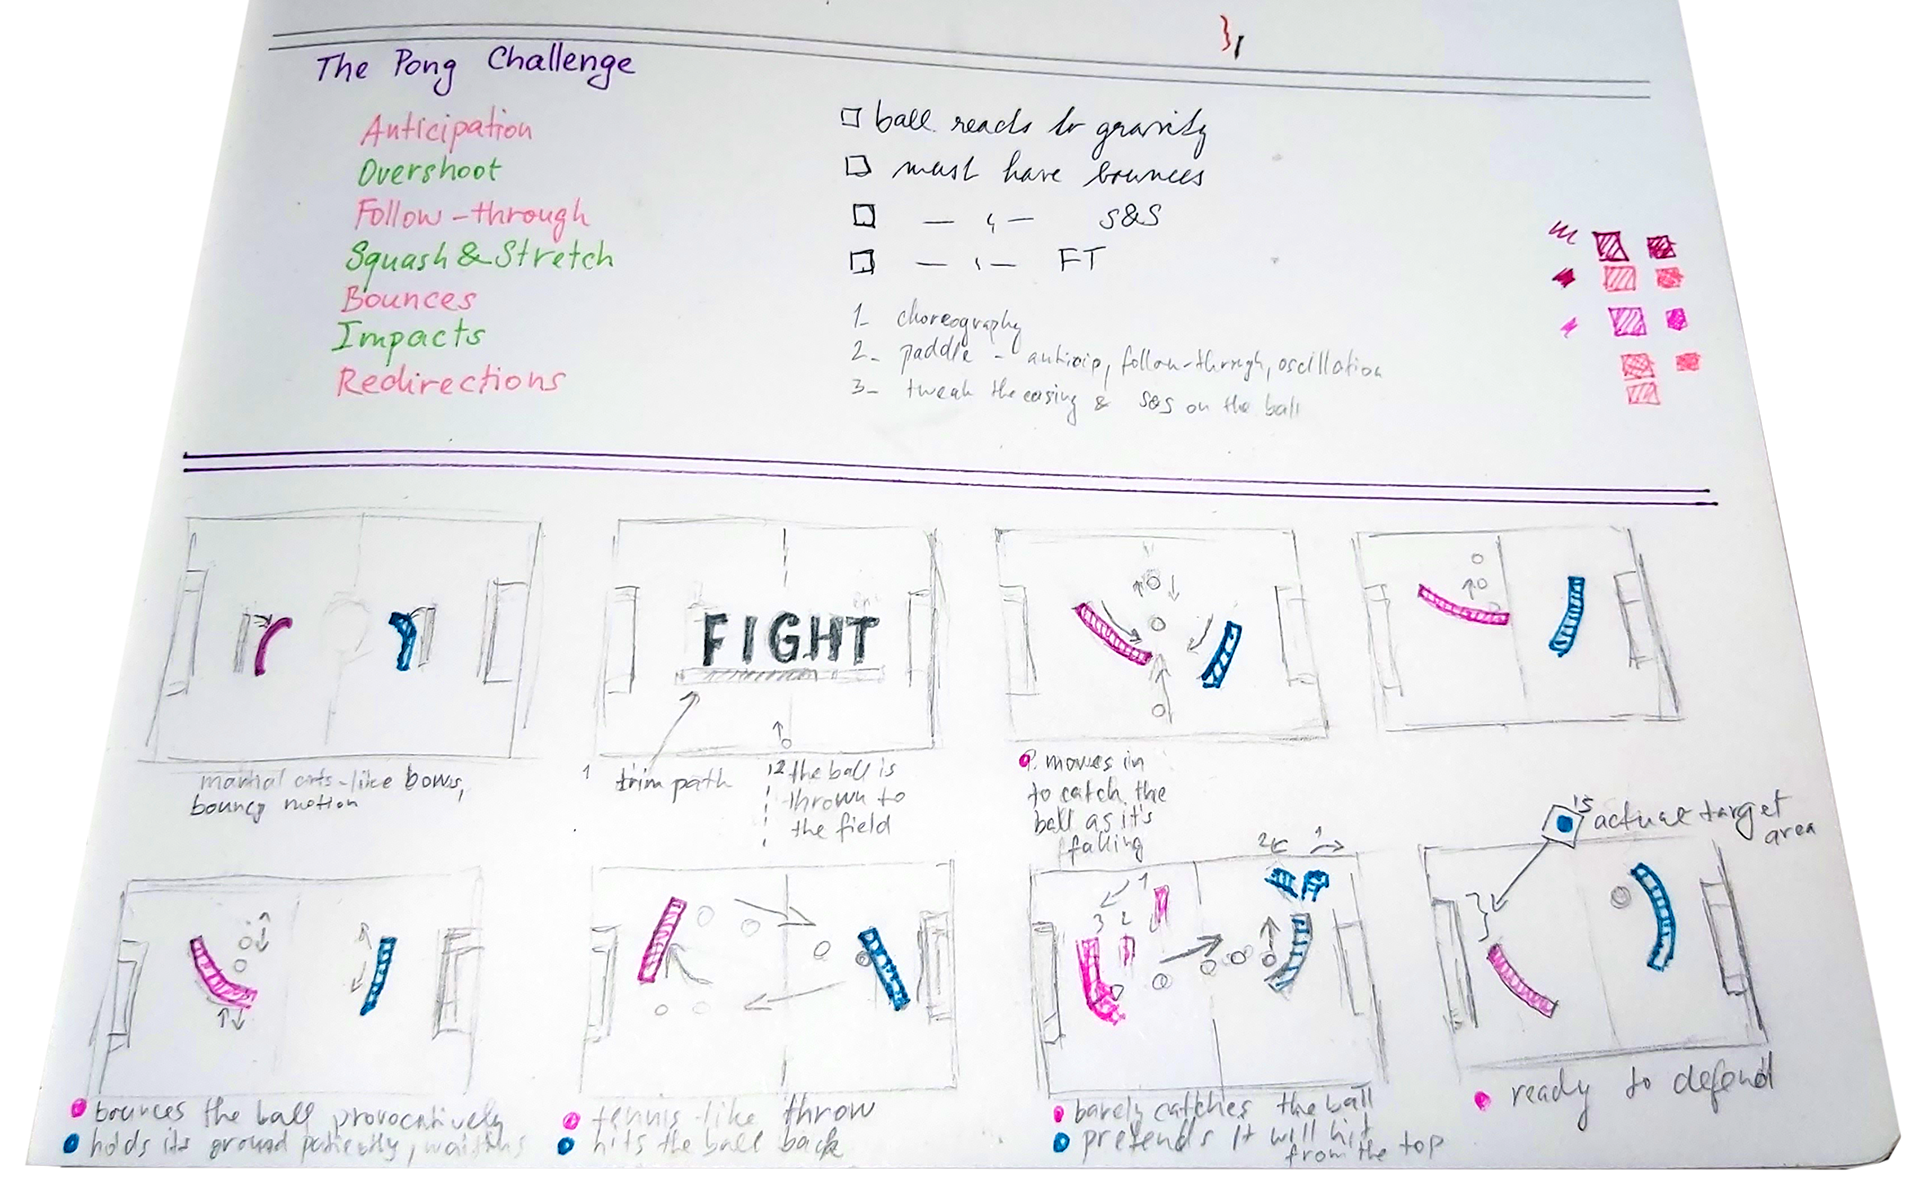 The Pong Challenge
Anticipation
Overshoot
Follow-through
Squash & Stretch
Bounces
Impacts
Redirections
ball reacts to gravity
must have bounces
— " — S&S
— " — FT
1- choreography
2- paddle - anticip, follow-through, oscillation
3- tweak the easing & S&S on the ball
martial arts-like bows,
bouncy motion
FIGHT
1 trim path
2 the ball is
thrown to
the field
moves in
to catch the
ball as it's
falling
bounces the ball provocatively
holds its ground patiently, waiting
tennis-like throw
hits the ball back
1
2
3
2
1
barely catches the ball
pretends it will hit
from the top
's actual target
area
ready to defend